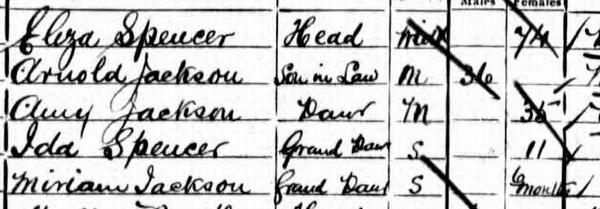 Males Females
Eliza Spencer Head Wid 74
Arnold Jackson Son in Law M 36
Amy Jackson Daur M 35
Ida Spencer Grand Daur S 11
Miriam Jackson Grand Daur S 6 months